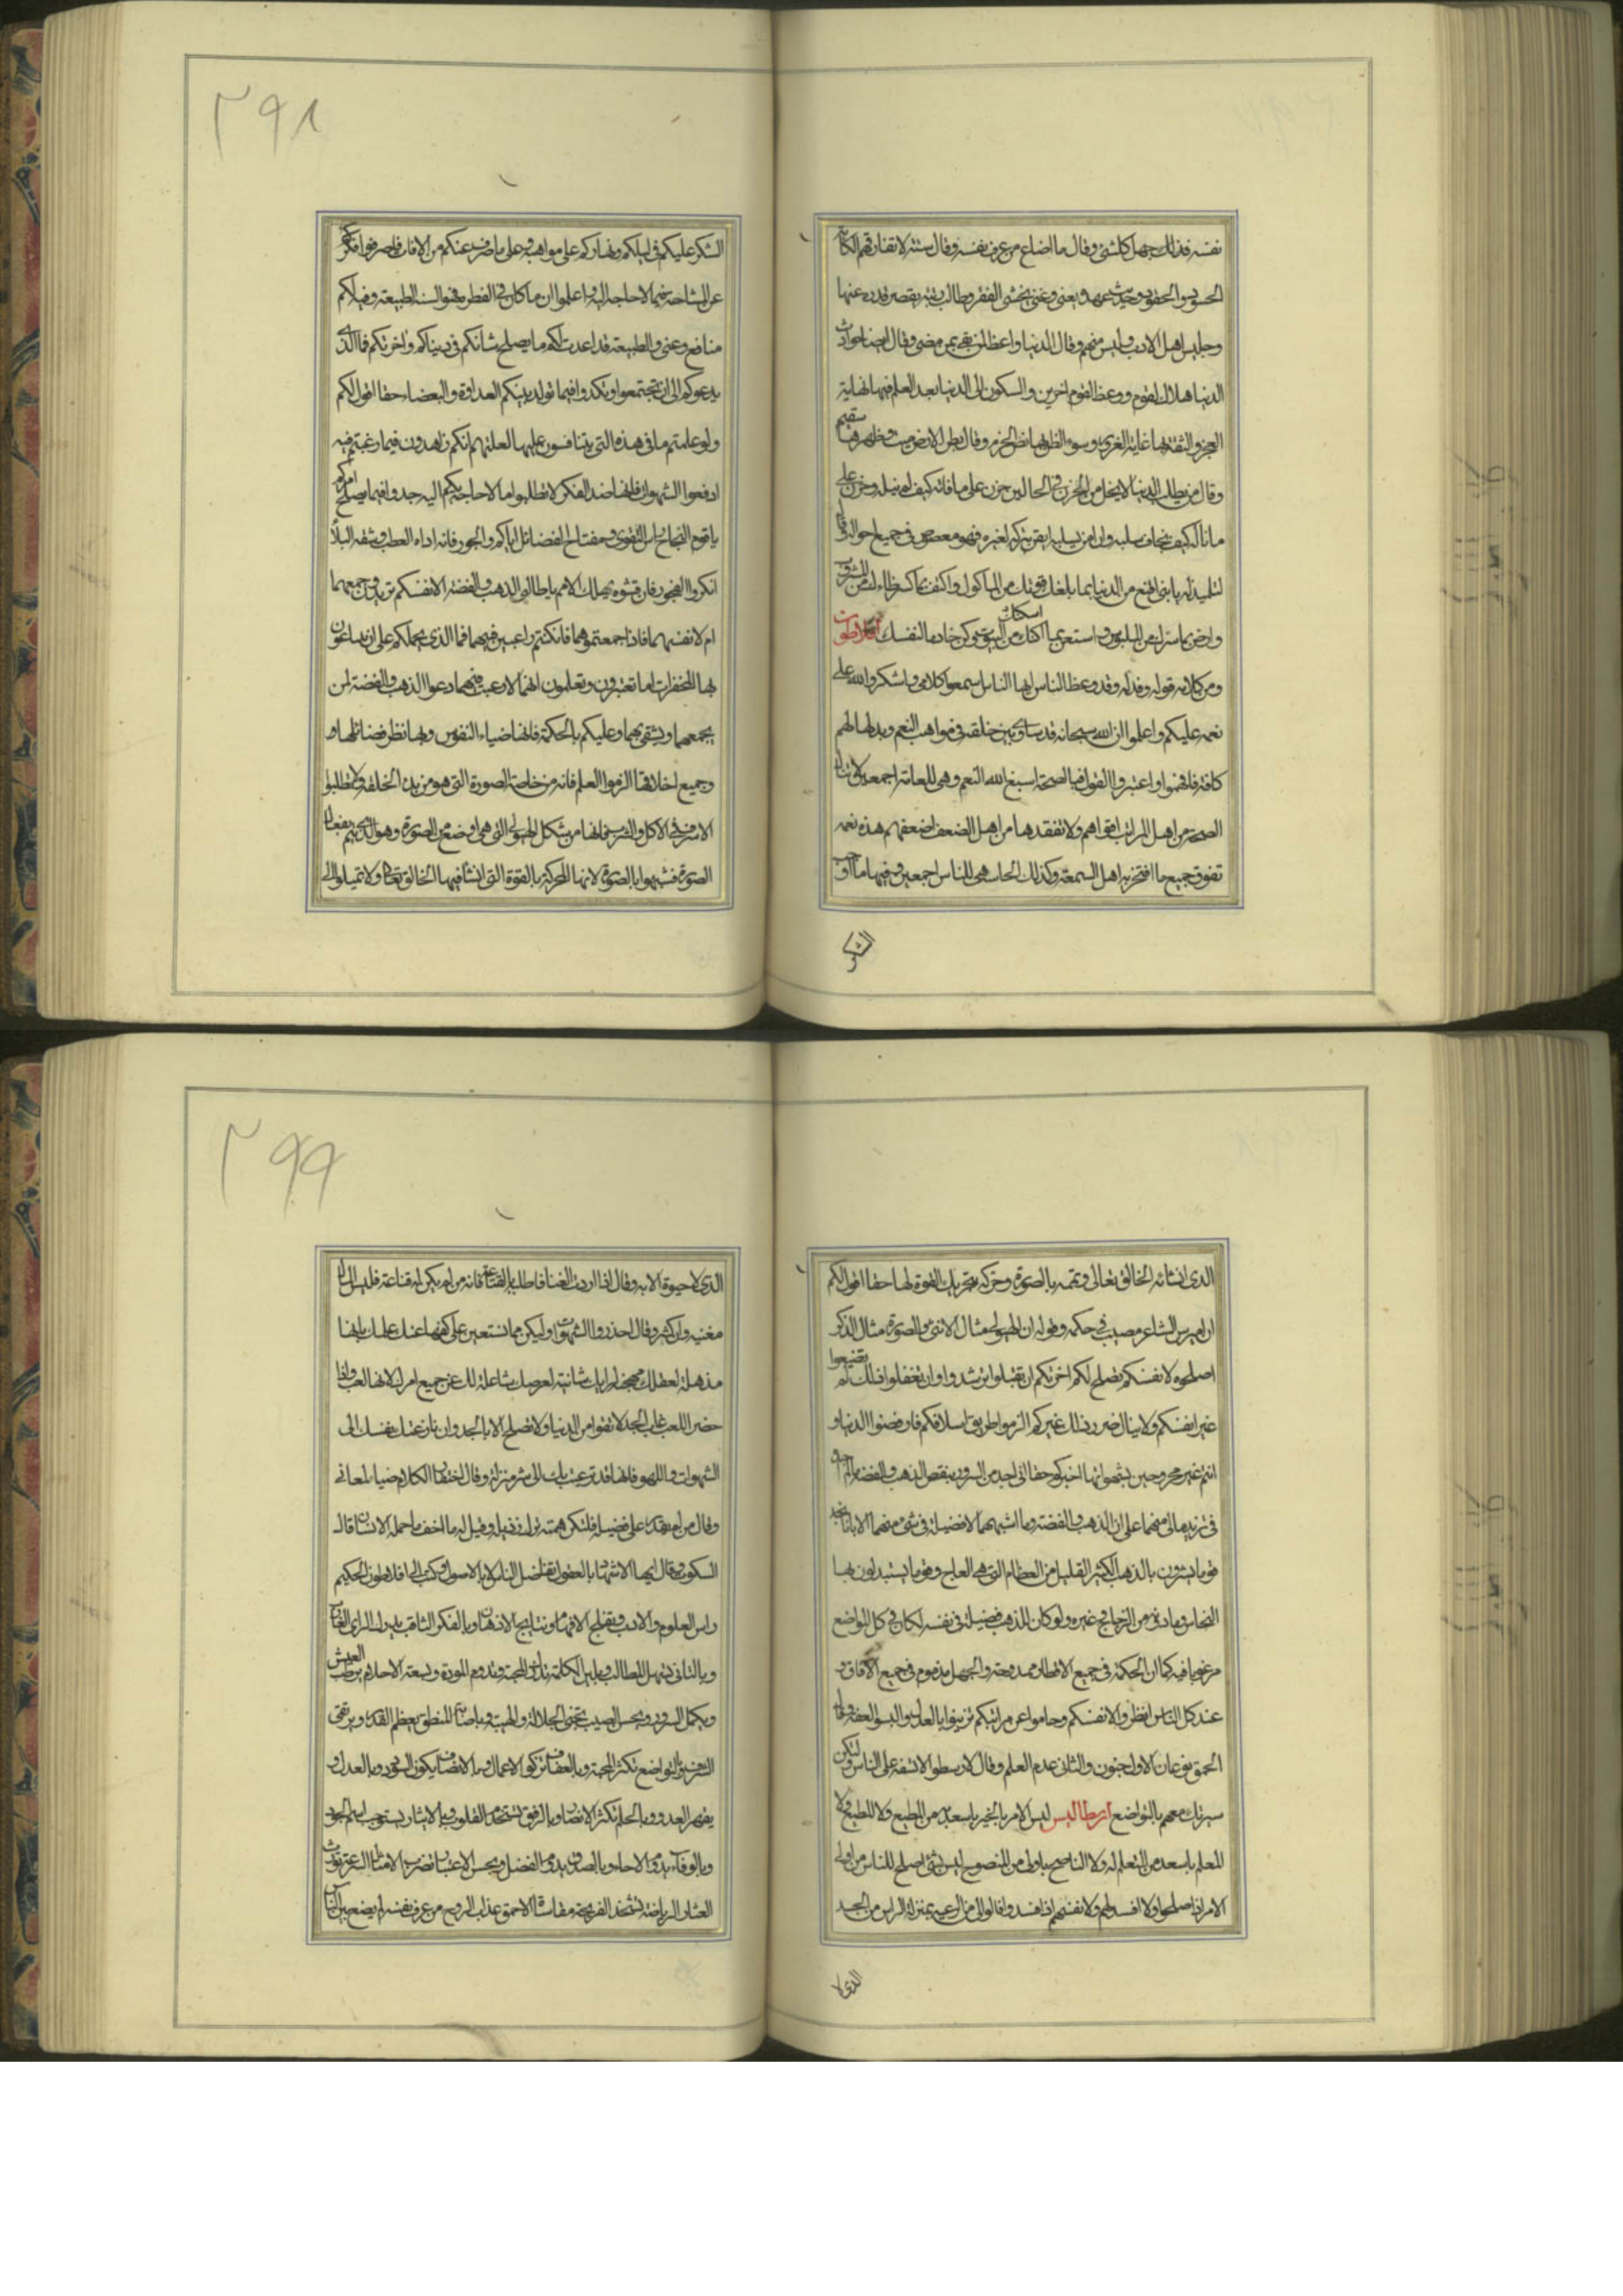 نفسه فذلك جهل كلشئ وقال ما اضاع من عرف نفسه وقال ستة لا تفارقهم الكآبة
الحسود والحقود وحديث عهد بغنى وغنى يخشى الفقر وطالب رتبة يقصر قدره عنها
وجليس اهل الادب وليس منهم وقال الدنيا واعظة لمن بقى بمن مضى وقال ايضا حوادث
الدنيا هلاك لقوم ووعظ لقوم اخرين والسكون الى الدنيا بعد العلم فيها نهاية
العجز والثقة بها غاية الغرور وسوء الظن بها نظر الحزم وقال بطن الارض ميت وظهرها سقيم
وقال من يطلب الدنيا لا يخل من الحزن فى الحالين حزن على ما فاته كيف لم ينله وحزن على
ما ناله كيف يخاف سلبه وان امن سلبه ايقن بتركه لغيره فهو مغصوص فى جميع احواله وقال
لتلميذه يا بنى اقنع من الدنيا بما بلغك قوتك من المأكول واكتف بما كسر ظماءك من المشروب
وارض بما سترك من الملبوس واستعن بما اكنك من البيوت وكن خادما لنفسك اسكات افلاطون
ومن كلامه قوله وقد وعظ الناس ايها الناس اسمعوا كلامى واشكروا الله على
نعمه عليكم واعلموا ان الله سبحانه قد ساوى بين خلقه فى مواهب النعم وبذلها لهم
كافة فافهموا واعتبروا القول فيا الصحة اسبغ الله النعم وهى للعامة اجمعين لا تنال
الصحة من اهل المراتب اقواهم ولا تفقدها من اهل الضعف اضعفهم هذه نعمه
تفوق جميع ما افتخر به اهل السمعة وكذلك الحاسة هى للناس اجمعين وفيها ما اوجب
الشكر
٢٩٨
الشكر عليكم فى ليلكم ونهاركم على مواهبه وعلى ما صرف عنكم من الافات فاصرفوا فكركم
عن المشاحة فيما لا حاجة اليه واعلموا ان ما كان فى الفطرة فهو السنة الطبيعة وفيه لكم
منافع وغنى والطبيعة قد اعدت لكم ما يصلح شانكم فى دنياكم واخرتكم فما الذى
يدعوكم الى ان تجتمعوا وتكدوا فيما تولد بينكم العداوة والبغضاء حقا اقول لكم
ولو علمتم ما فى هذه التى يتنافسون عليها لعلمتم انكم زاهدون فيما رغبتم فيه
ادفعوا الشهوات فانها ضد الفكر لا تطلبوا ما لا حاجة بكم اليه جدوا فيما يصلح امركم
يا قوم النجاح اس التقوى ومفتاح الفضائل اياكم والجور فانه اداة العطب وثقة البلاء
انكروا الفجور فان قشوه يهلك الامم يا طالبى الذهب والفضة الانفسكم تريدون جمعهما
ام لانفسهما فاذا جمعتموهما فانكنتم راغبين فيهما فما الذى يحملكم على ان تبتاعون
بها المحقرات اما تعتبرون وتعلمون انهما لا رغبة فيهما دعوا الذهب والفضة لمن
يجمعهما ويشقى بهما وعليكم بالحكمة فانها ضياء النفوس وبها نظر فضائلها و
وجميع اخلاقها الزموا العلم فانه من خاصة الصورة التى هو من بدء الخلقة ولا تطلبوا
الاسراف فى الاكل والشرب فانها من شكل الهيولى التى هى اوضع من الصورة وهو الذى يتم بفعال
الصورة فتشبهوا بالصورة لانها المحركة بالقوة التى انشأ فيها الخالق تعالى ولا تميلوا الى
الذى انشاته الخالق تعالى وتممه بالصورة وحركه بتحريك القوة لها حقا اقول لكم
ان اميرس الشاعر مصيب فى حكمه وقوله ان الهيولى مثال الانثى والصورة مثال الذكر
اصلحوه لانفسكم تصلح لكم اخرتكم ان تقبلوا ترشدوا وان تغفلوا فلك لم تضيعوا
غير انفسكم ولا ينال ضرر ذلك غيركم الزموا طريق اسلافكم فارفضوا الدنيا و
انتم غير مجروحين بشهواتها اخبركم حقا انى اجد من السرور بنقص الذهب والفضة ما لم اجده
فى تزيد مالى منهما على ان الذهب والفضة وما اشبههما لا فضيلة فى شئ منهما الا بانا نجد
قوما يشترون بالذهب الكثير القليل من العظام التى هى العاج وقوما يستبدلون بها
النحاس وما دونه من الزجاج وغيره ولو كان للذهب فضيلة فى نفسه لكان فى كل المواضع
مرغوبا فيه كما ان الحكمة فى جميع الاقطار ممدوحة والجهل مذموم فى جميع الافاق و
عند كل الناس انظروا لانفسكم وحاموا عن مراتبكم تزينوا بالعدل والبسوا العفة وقال
الحمق نوعان الاول جنون والثانى عدم العلم وقال لارسطو لا تشفه على الناس ولتكن
سيرتك معهم بالتواضع ارسطاليس ليس الامر بالخير باسعد من المطيع ولا المطيع ولا
المعلم باسعد من المتعلم له ولا الناصح باولى من المنصوح ليس شئ اصلح للناس من اولى
الامر اذا صلحوا ولا افسد لهم ولانفسهم اذا فسدوا فالوالى من الرعية بمنزلة الراس من الجسد
الذى لا
٢٩٩
الذى لا حيوة الا به وقال اذا اردت الغنا فاطلبه بالقناعة فانه من لم يكن له قناعة فليس المال
مغنيه وان كثر وقال احذروا الشهوات وليكن مما تستعين على كفها عنك علمك بانها
مذهلة لعقلك مهجنة لرايك شانية لعرضك شاغلة لك عن جميع امرك لانها لعب واذا
حضر اللعب غاب الجد لا تقوا من الدنيا ولا تصلح الا بالجد وان نازعتك نفسك الى
الشهوات واللهو فانها قد نزعت بك الى شر منزلة وقال اختصار الكلام ضياء المعانى
وقال من لم يقدر على فضيلة فلتكن همته ترك رذيلة وقيل له ما اخف ما حمله الانسان قال
السكوت وقال ايها الاشهاد بالعقول تفاضل الناس لا بالاصول وكتب الى افلاطون الحكيم
راس العلوم والادب وتلقيح الافهام ونتايج الاذهان وبالفكر الثاقب يدرك الراى العازب
وبالتانى تسهل المطالب وبلين الكلمة تدوم المحبة وتدوم المودة وبسعة الاخلاق يطيب العيش
ويكمل السرور وبحسن الصمت تجتنى الجلالة والهيبة وباصابة المنطق يعظم القدر ويرتقى
الشرف وبالتواضع تكثر المحبة وبالعفاف تزكو الاعمال وبالانصاف يكون السودد وبالعدل
يقهر العدو وبالحلم تكثر الانصار وبالرفق تستخدم القلوب وبالايثار يستوجب اسم الجود
وبالوفاء يدوم الاخاء وبالصدق يدوم الفضل وبحسن الاعتبار تضرب الامثال السرعة تورث
العثار الرياضة تشحذ القريحة مقاساة الاحمق عذاب الروح من عرف نفسه لم يضع بين الناس